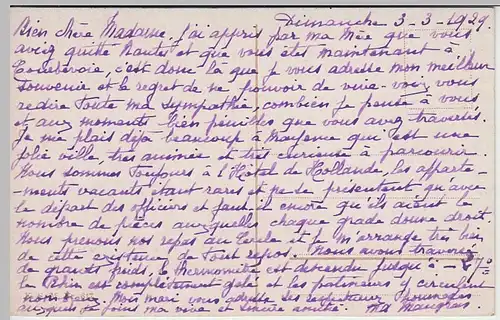 Dimanche 3-3-1929.
Bien chère Madame, j'ai appris par ma Mère que vous
aviez quitté Nantes et que vous êtes maintenant à
Courbevoie, c'est donc là que je vous adresse mon meilleur
souvenir et le regret de ne pouvoir de vive-voix vous
redire toute ma sympathie, combien je pense à vous
et aux moments bien pénibles que vous avez traversés.
Je me plais déjà beaucoup à Mayence qui est une
jolie ville, très animée et très curieuse à parcourir.
Nous sommes toujours à l'Hôtel de Hollande, les apparte-
ments vacants étant rares et ne se présentent qu'avec
le départ des officiers et faut-il encore qu'ils aient le
nombre de pièces auxquelles chaque grade donne droit.
Nous prenons nos repas au Cercle et je m'arrange très bien
de cette existence de tout repos. Nous avons traversé
de grands froids, le thermomètre est descendu jusqu'à -27°
le Rhin est complètement gelé et les patineurs y circulent
Mon mari vous adresse ses respectueux hommages
auxquels je joins ma vive et sincère amitié. Md